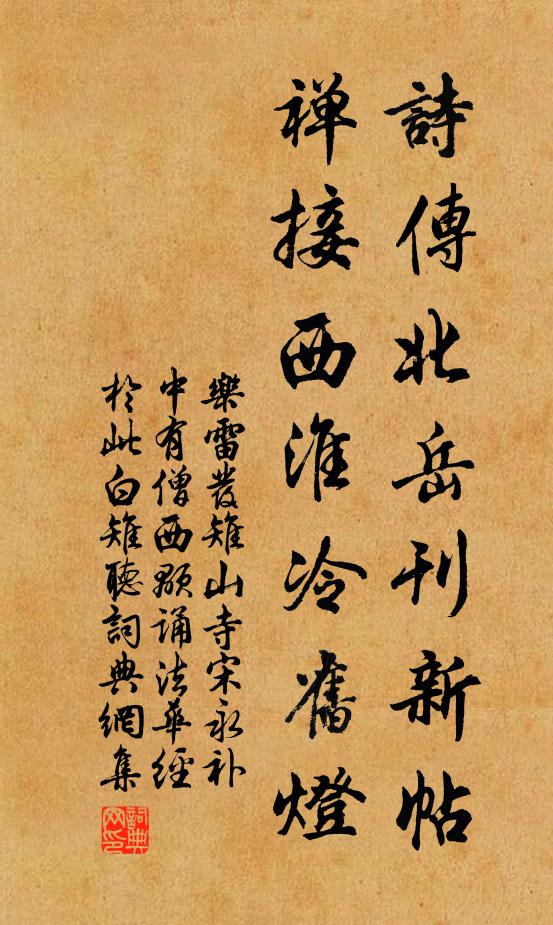 詩傳北岳刊新帖
禅接西淮冷舊燈
樂雷發雉山寺宋永补
中有僧西顥誦法華經
於此白雉聽詞典網集
詞典
网印